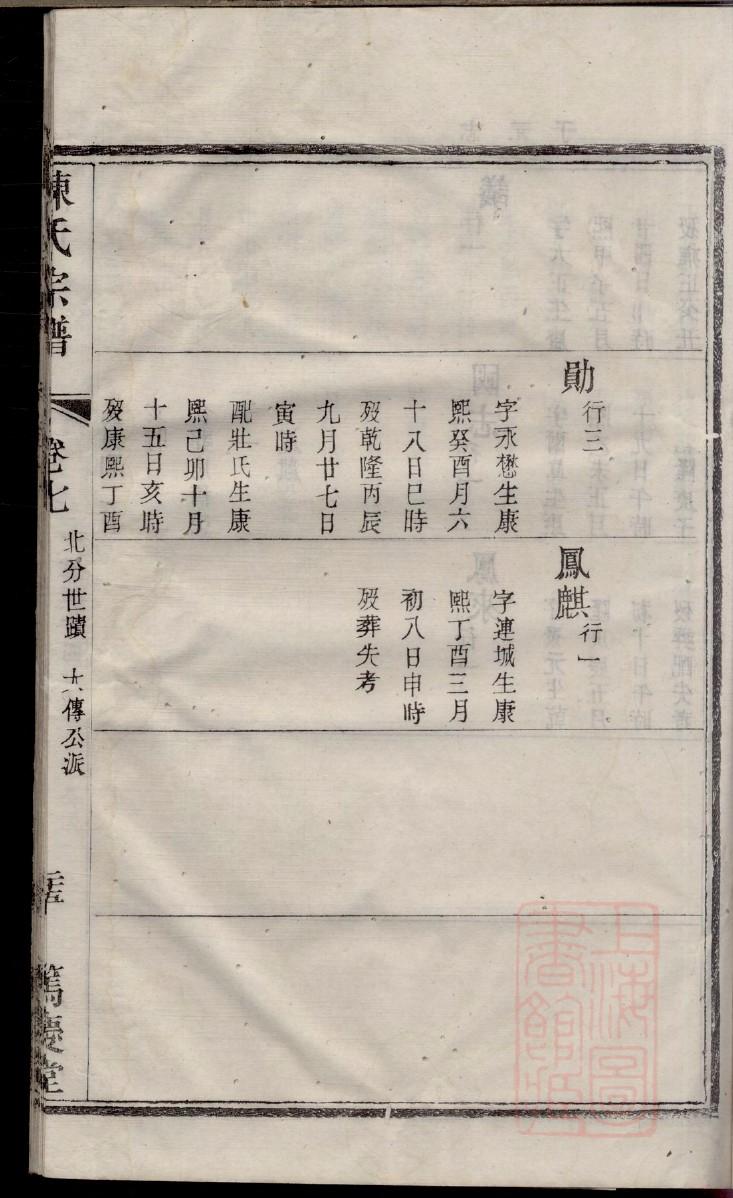 勛行三
字永懋生康
熙癸酉月六
十八日巳時
歿乾隆丙辰
九月廿七日
寅時
配壯氏生康
熙己卯十月
十五日亥時
歿康熙丁酉
鳳麒行一
字連城生康
熙丁酉三月
初八日申時
歿葬失考
陳氏宗譜
卷七
北分世蹟 十六傳公派
篤慶堂
上海圖書館藏